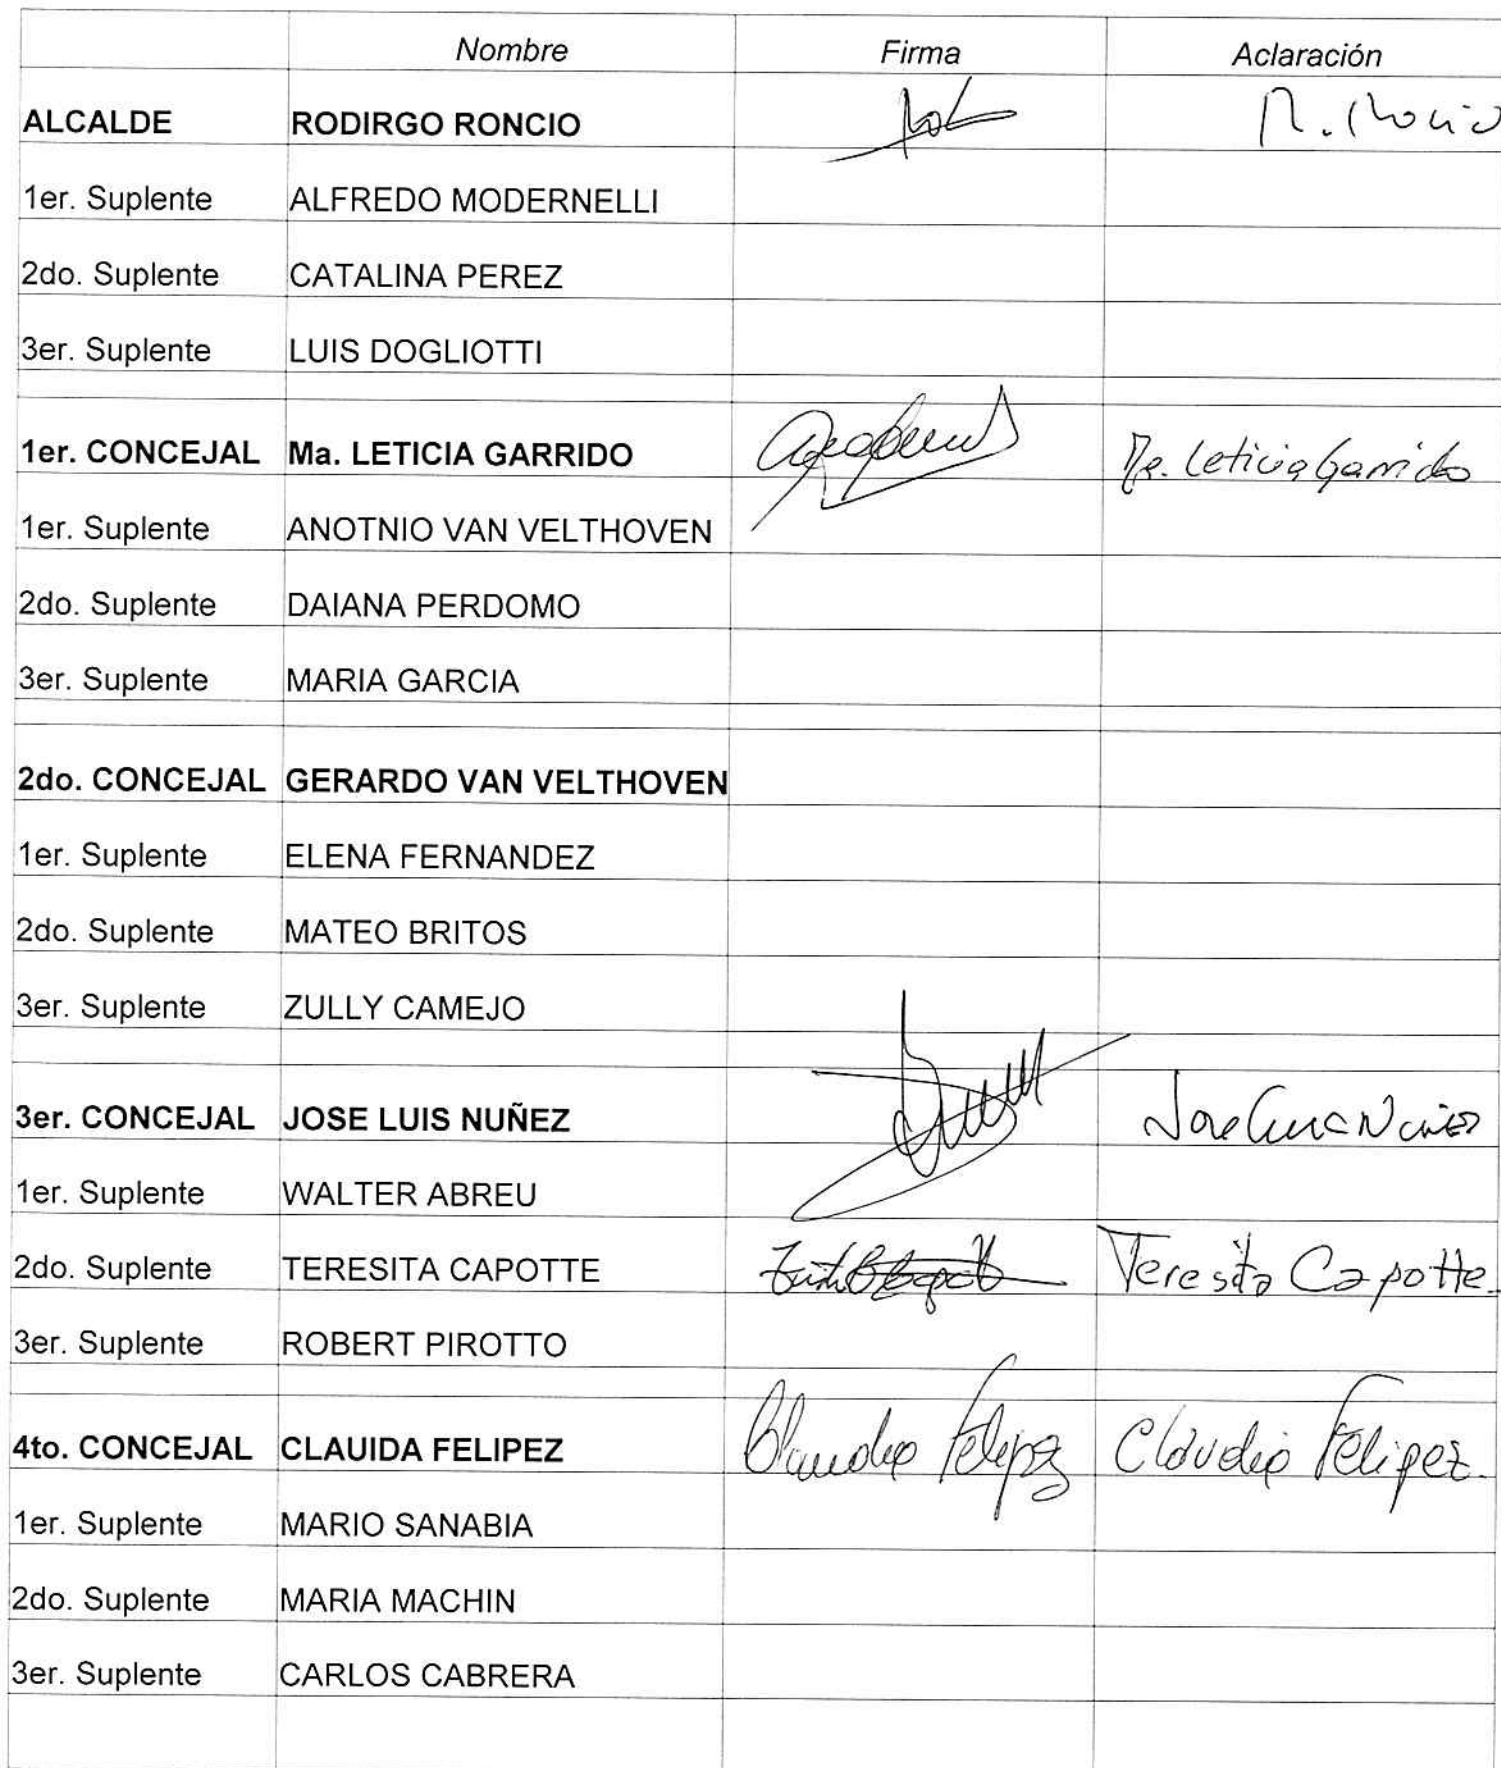 Nombre Firma Aclaración
ALCALDE RODIRGO RONCIO
1er. Suplente ALFREDO MODERNELLI
2do. Suplente CATALINA PEREZ
3er. Suplente LUIS DOGLIOTTI
1er. CONCEJAL Ma. LETICIA GARRIDO Ma. Leticia Garrido
1er. Suplente ANOTNIO VAN VELTHOVEN
2do. Suplente DAIANA PERDOMO
3er. Suplente MARIA GARCIA
2do. CONCEJAL GERARDO VAN VELTHOVEN
1er. Suplente ELENA FERNANDEZ
2do. Suplente MATEO BRITOS
3er. Suplente ZULLY CAMEJO
3er. CONCEJAL JOSE LUIS NUÑEZ Jose Luis Nuñez
1er. Suplente WALTER ABREU
2do. Suplente TERESITA CAPOTTE Teresita Capotte.
3er. Suplente ROBERT PIROTTO
4to. CONCEJAL CLAUIDA FELIPEZ Claudia Felipez Claudia Felipez.
1er. Suplente MARIO SANABIA
2do. Suplente MARIA MACHIN
3er. Suplente CARLOS CABRERA